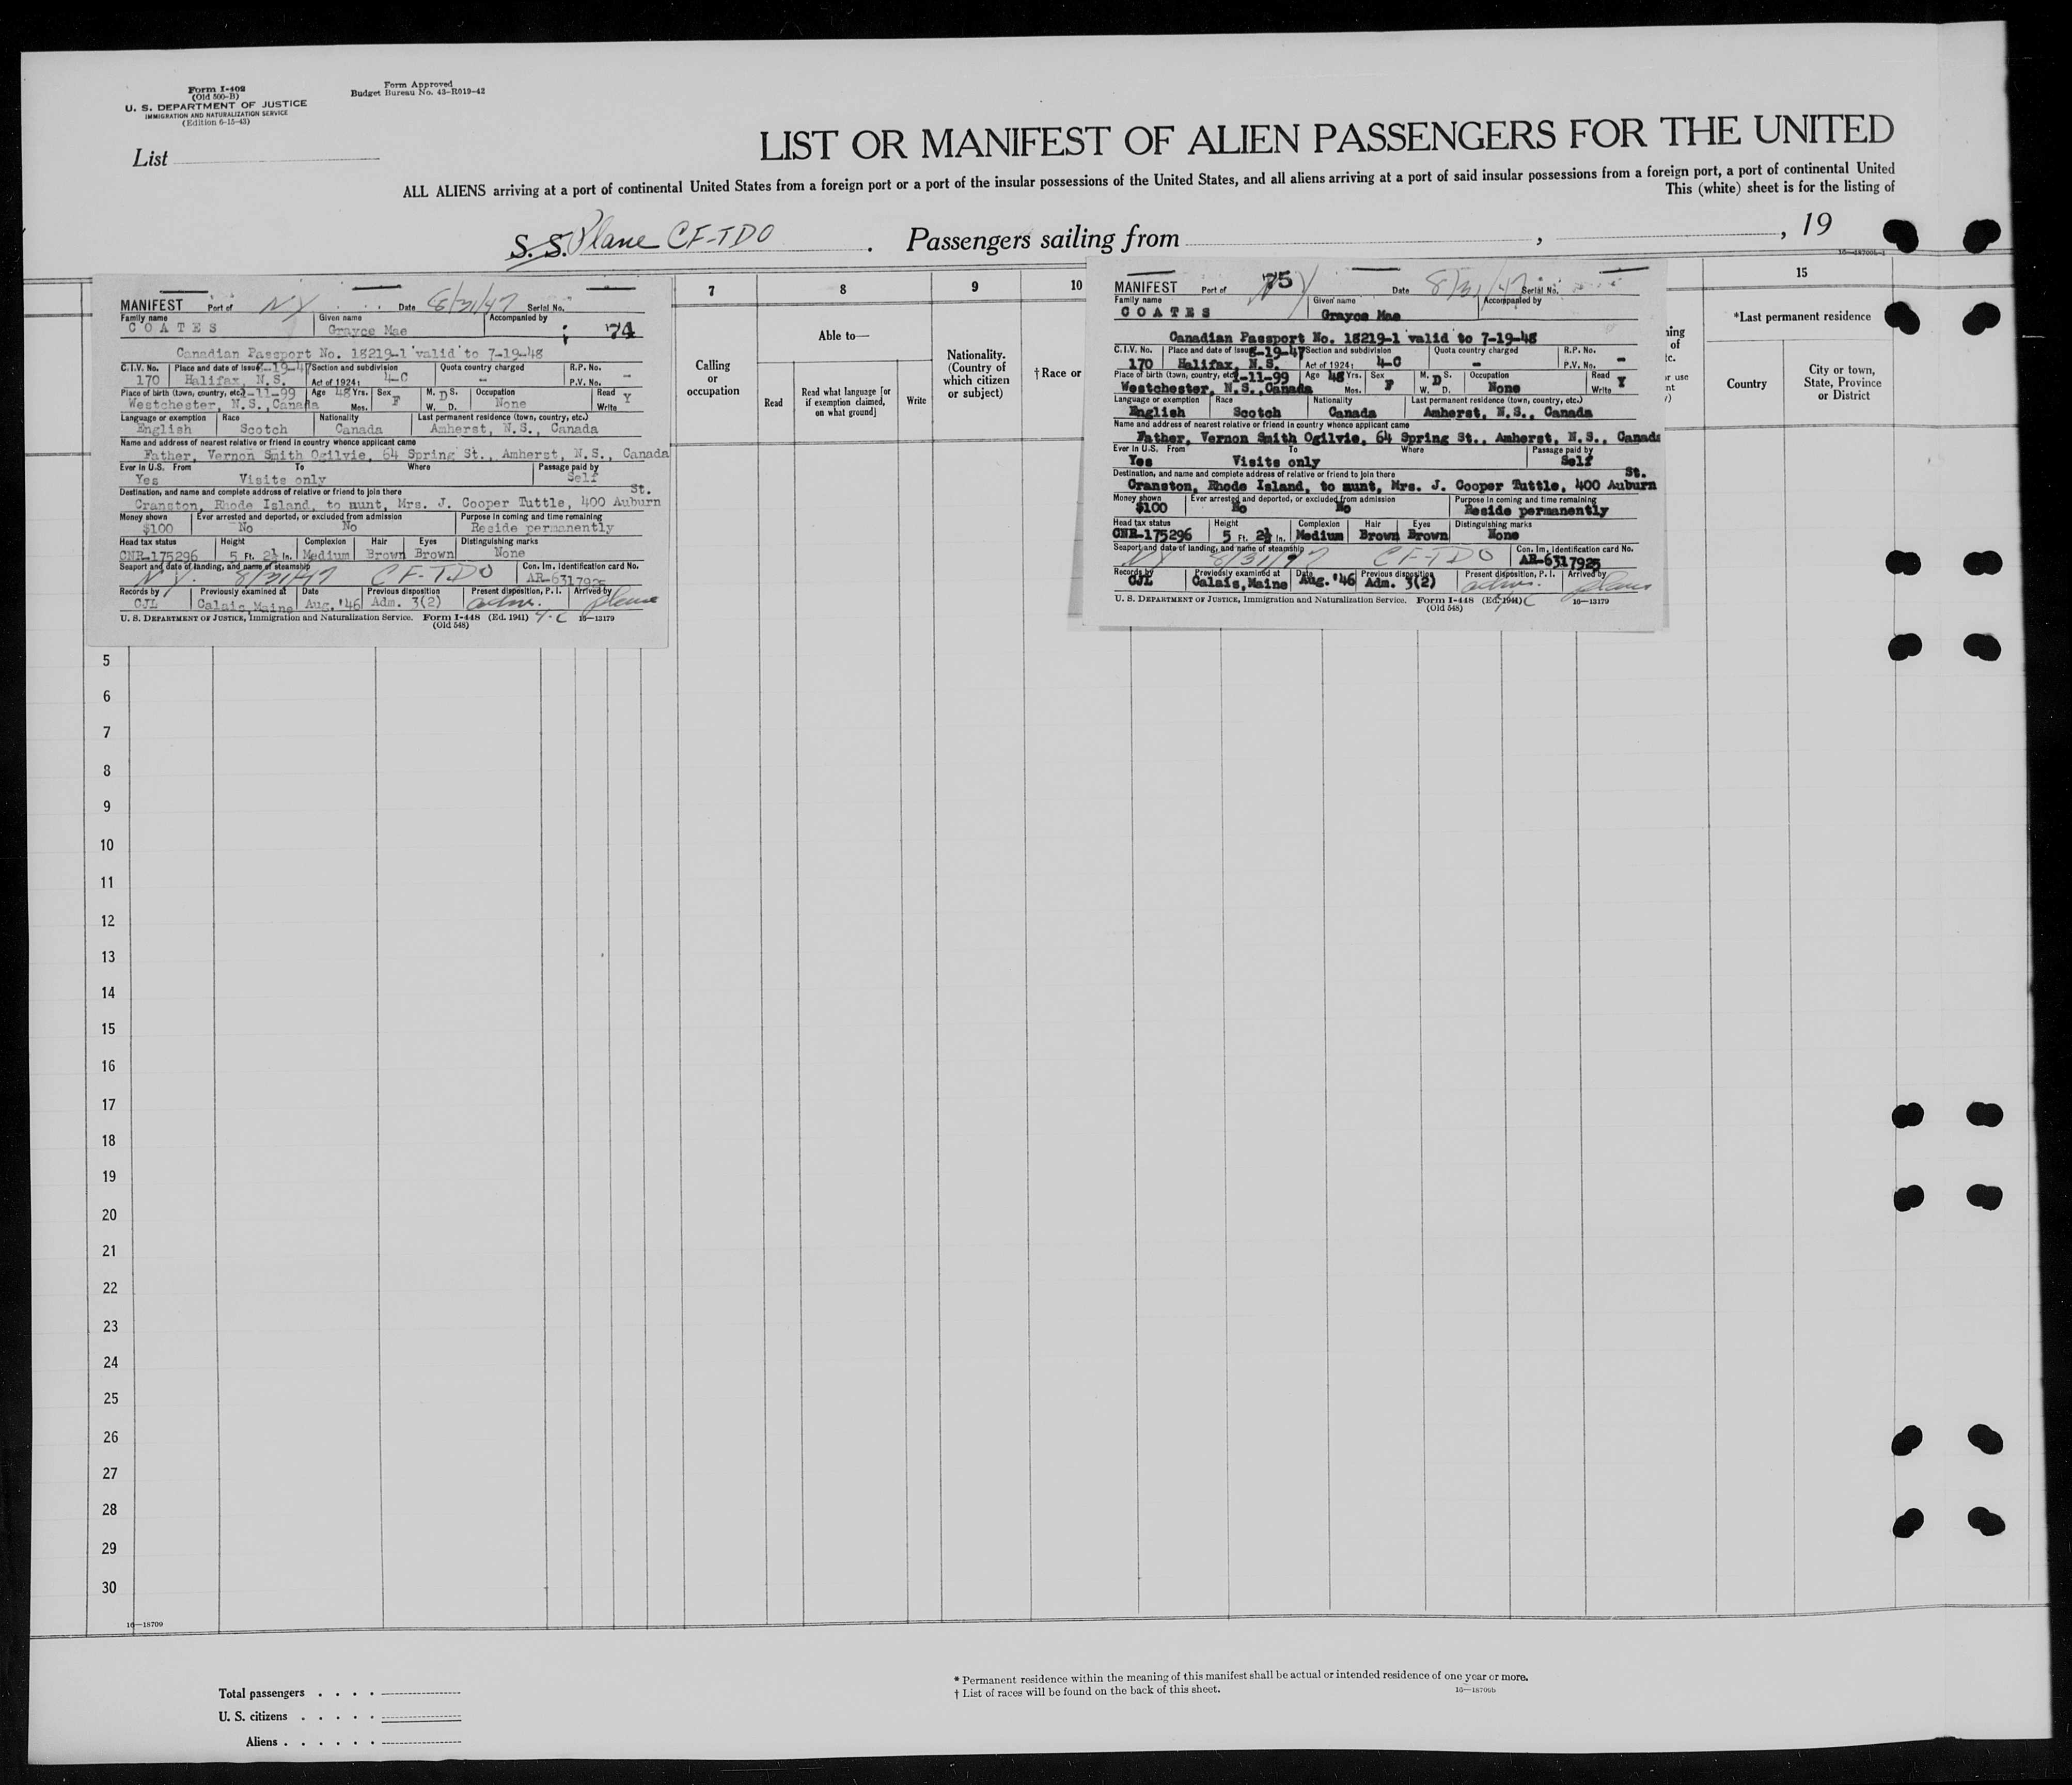 Form I-402
(Old 500-B)
U. S. DEPARTMENT OF JUSTICE
IMMIGRATION AND NATURALIZATION SERVICE
(Edition 6-15-43)
Form Approved
Budget Bureau No. 43-R019-42
List
LIST OR MANIFEST OF ALIEN PASSENGERS FOR THE UNITED
ALL ALIENS arriving at a port of continental United States from a foreign port or a port of the insular possessions of the United States, and all aliens arriving at a port of said insular possessions from a foreign port, a port of continental United
This (white) sheet is for the listing of
S. S. Plane CF-TDO . Passengers sailing from , , 19
MANIFEST Port of NY Date 8/31/47 Serial No.
Family name Given name Accompanied by
COATES Grayce Mae 74
Canadian Passport No. 18219-1 valid to 7-19-48
C.I.V. No. Place and date of issue -19-47 Section and subdivision Quota country charged R.P. No.
170 Halifax, N.S. Act of 1924: 4-C - P.V. No. -
Place of birth (town, country, etc.) -11-99 Age 48 Yrs. Sex M. D S. Occupation Read Y
Westchester, N.S., Canada Mos. F W. D. None Write
Language or exemption Race Nationality Last permanent residence (town, country, etc.)
English Scotch Canada Amherst, N.S., Canada
Name and address of nearest relative or friend in country whence applicant came
Father, Vernon Smith Ogilvie, 64 Spring St., Amherst, N.S., Canada
Ever in U.S. From To Where Passage paid by
Yes Visits only Self
Destination, and name and complete address of relative or friend to join there St.
Cranston, Rhode Island, to munt, Mrs. J. Cooper Tuttle, 400 Auburn
Money shown Ever arrested and deported, or excluded from admission Purpose in coming and time remaining
$100 No No Reside permanently
Head tax status Height Complexion Hair Eyes Distinguishing marks
CNR-175296 5 Ft. 2½ In. Medium Brown Brown None
Seaport and date of landing, and name of steamship Con. Im. Identification card No.
N.Y. 8/31/47 CF-TDO AR-6317925
Records by Previously examined at Date Previous disposition Present disposition, P. I. Arrived by
CJL Calais, Maine Aug. '46 Adm. 3(2) adm. plane
U. S. DEPARTMENT OF JUSTICE, Immigration and Naturalization Service. Form I-448 (Ed. 1941) 4-C 16—13179
(Old 548)
7
Calling
or
occupation
8
Able to—
Read
Read what language [or
if exemption claimed,
on what ground]
Write
9
Nationality.
(Country of
which citizen
or subject)
10
† Race or
MANIFEST Port of NY 75 Date 8/31/47 Serial No.
Family name Given name Accompanied by
COATES Grayce Mae
Canadian Passport No. 18219-1 valid to 7-19-48
C.I.V. No. Place and date of issue -19-47 Section and subdivision Quota country charged R.P. No.
170 Halifax, N.S. Act of 1924: 4-C - P.V. No. -
Place of birth (town, country, etc.) -11-99 Age 48 Yrs. Sex M. D S. Occupation Read Y
Westchester, N.S., Canada Mos. F W. D. None Write
Language or exemption Race Nationality Last permanent residence (town, country, etc.)
English Scotch Canada Amherst, N.S., Canada
Name and address of nearest relative or friend in country whence applicant came
Father, Vernon Smith Ogilvie, 64 Spring St., Amherst, N.S., Canada
Ever in U.S. From To Where Passage paid by
Yes Visits only Self
Destination, and name and complete address of relative or friend to join there St.
Cranston, Rhode Island, to munt, Mrs. J. Cooper Tuttle, 400 Auburn
Money shown Ever arrested and deported, or excluded from admission Purpose in coming and time remaining
$100 No No Reside permanently
Head tax status Height Complexion Hair Eyes Distinguishing marks
CNR-175296 5 Ft. 2½ In. Medium Brown Brown None
Seaport and date of landing, and name of steamship Con. Im. Identification card No.
NY 8/31/47 CF-TDO AR-6317925
Records by Previously examined at Date Previous disposition Present disposition, P. I. Arrived by
CJL Calais, Maine Aug. '46 Adm. 3(2) adm. plane
U. S. DEPARTMENT OF JUSTICE, Immigration and Naturalization Service. Form I-448 (Ed. 1941) 4-C 16—13179
(Old 548)
15
*Last permanent residence
Country
City or town,
State, Province
or District
5
6
7
8
9
10
11
12
13
14
15
16
17
18
19
20
21
22
23
24
25
26
27
28
29
30
16—18709
Total passengers . . . .
U. S. citizens . . . . .
Aliens . . . . . .
* Permanent residence within the meaning of this manifest shall be actual or intended residence of one year or more.
† List of races will be found on the back of this sheet.
16—18709b